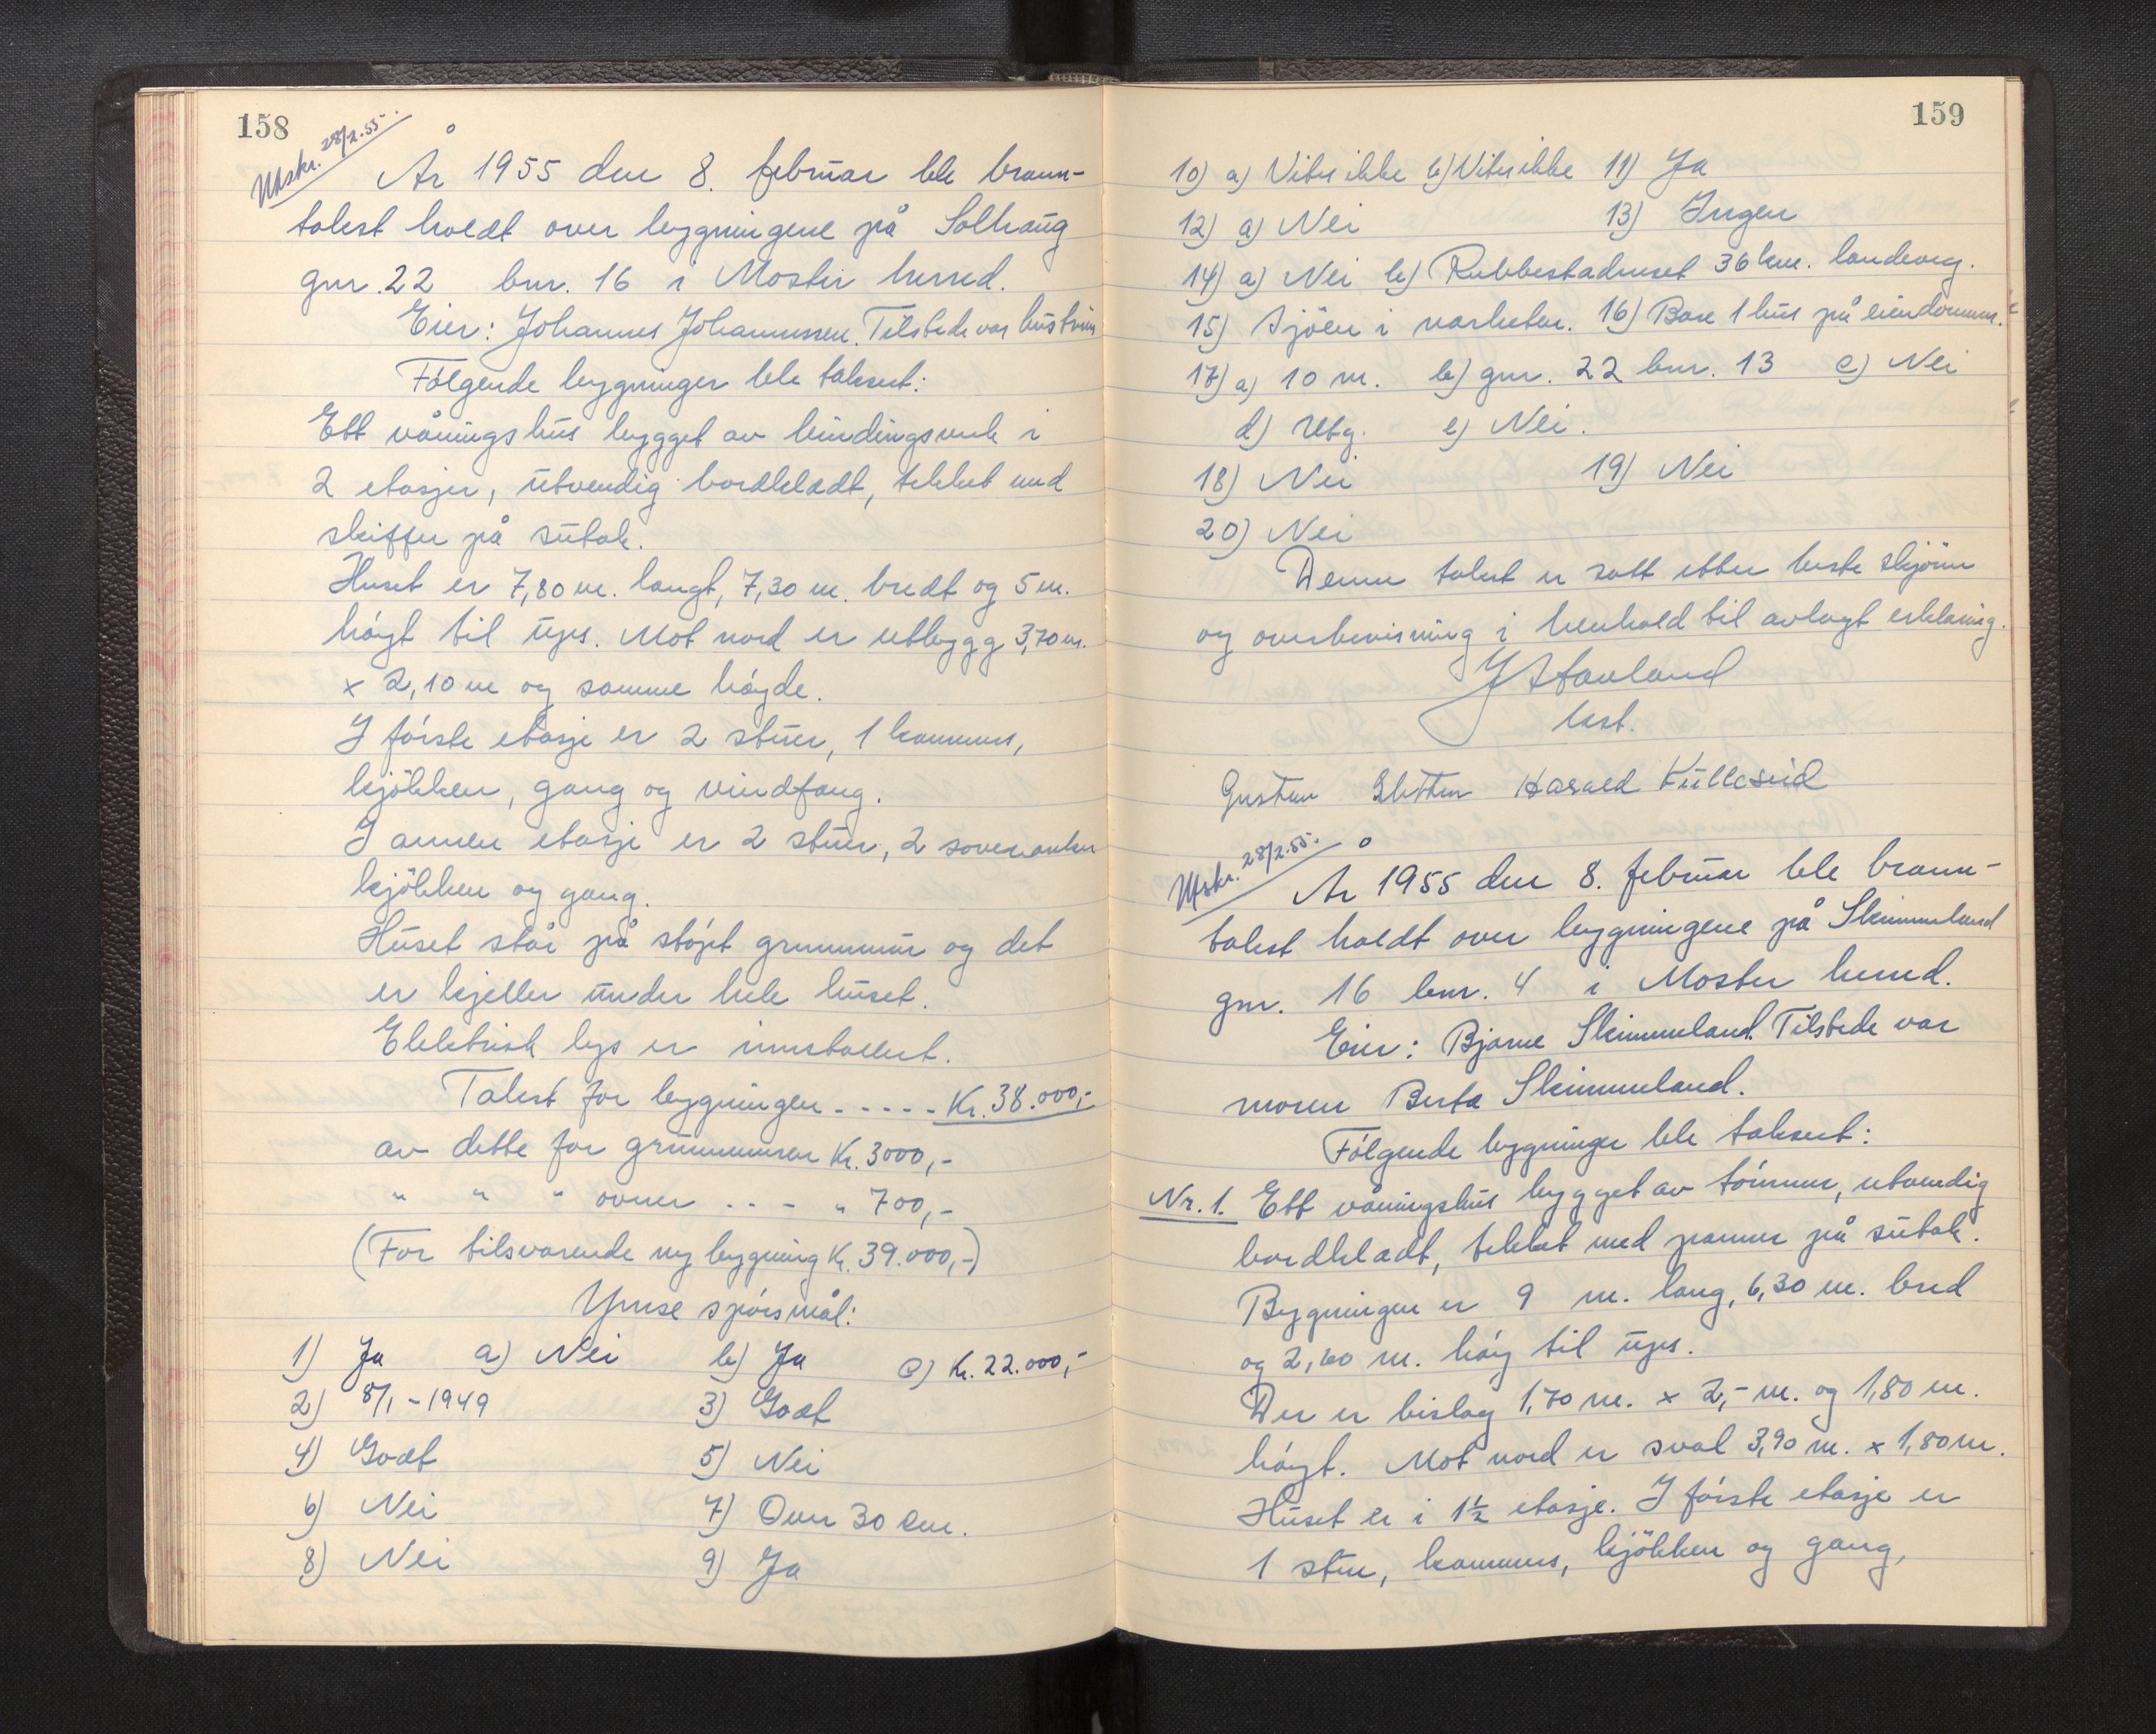 158
Utskr. 28/2.55.
År 1955 den 8. februar ble brann-
takst holdt over bygningene på Solhaug
gnr. 22 bnr. 16 i Moster herred.
Eier: Johannes Johannessen. Tilstede var hustruen
Følgende bygninger ble taksert:
Ett våningshus bygget av bindingsverk i
2 etasjer, utvendig bordkledt, tekket med
skiffer på sutak.
Huset er 7,80 m. langt, 7,30 m. bredt og 5 m.
høgt til ups. Mot nord er utbygg 3,70 m.
x 2,10 m og samme høgde.
I første etasje er 2 stuer, 1 kammers,
kjøkken, gang og vindfang.
I annen etasje er 2 stuer, 2 soverom
kjøkken og gang.
Huset står på støpt grunnmur og det
er kjeller under hele huset.
Elektrisk lys er innstallert.
Takst for bygningen - - - - - Kr. 38.000,-
av dette for grunnmuren Kr. 3000,-
" " " ovner . . - " 700,-
(For tilsvarende ny bygning Kr. 39.000,-)
Ymse spørsmål:
1) Ja a) Nei b) Ja c) Kr. 22.000,-
2) 8/1 - 1949 3) Godt
4) Godt 5) Nei
6) Nei 7) Over 30 cm.
8) Nei 9) Ja
159
10) a) Vites ikke b) Vites ikke 11) Ja
12) a) Nei 13) Ingen
14) a) Nei b) Rubbestadneset 36 km. landeveg.
15) Sjøen i nærheten. 16) Bare 1 hus på eiendommen.
17) a) 10 m. b) gnr. 22 bnr. 13 c) Nei
d) Utg. e) Nei.
18) Nei 19) Nei
20) Nei
Denne takst er satt etter beste skjønn
og overbevisning i henhold til avlagt erklæring.
J Stavland
lest.
Gustav Sletten Harald Kulleseid
Utskr. 28/2.55.
År 1955 den 8. februar ble brann-
takst holdt over bygningene på Skimmeland
gnr. 16 bnr. 4 i Moster herred.
Eier: Bjarne Skimmeland. Tilstede var
moren Berta Skimmeland.
Følgende bygninger ble taksert:
Nr. 1. Ett våningshus bygget av tømmer, utvendig
bordkledt, tekket med panner på sutak.
Bygningen er 9 m. lang, 6,30 m. bred
og 2,60 m. høg til ups.
Der er bislag 1,70 m. x 2,- m. og 1,80 m.
høgt. Mot nord er sval 3,90 m. x 1,80 m.
Huset er i 1½ etasje. I første etasje er
1 stue, kammers, kjøkken og gang,